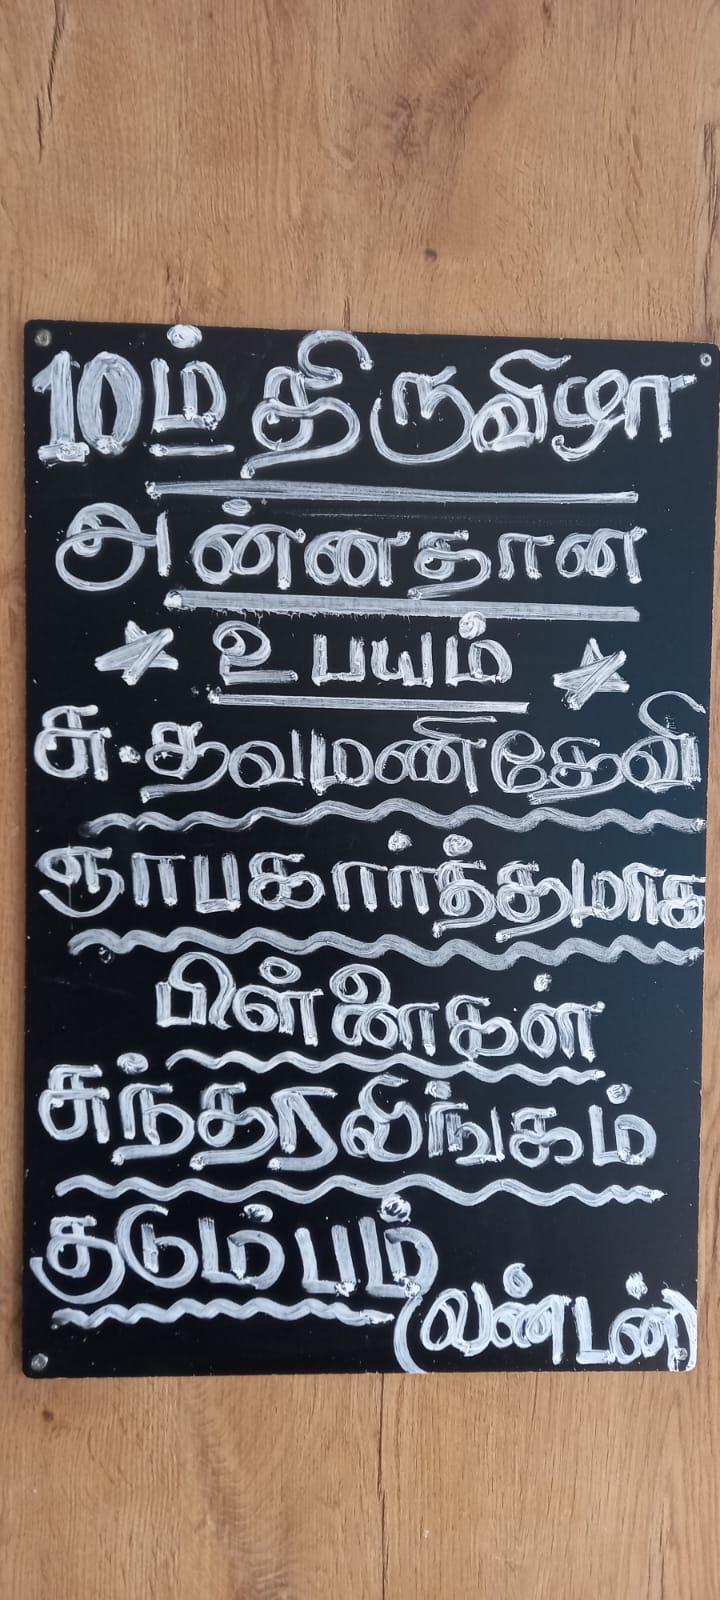 10ம் திருவிழா
அன்னதான
உபயம்
சு.தவமணிதேவி
ஞாபகார்த்தமாக
பிள்ளைகள்
சுந்தரலிங்கம்
குடும்பம்
(லண்டன்)